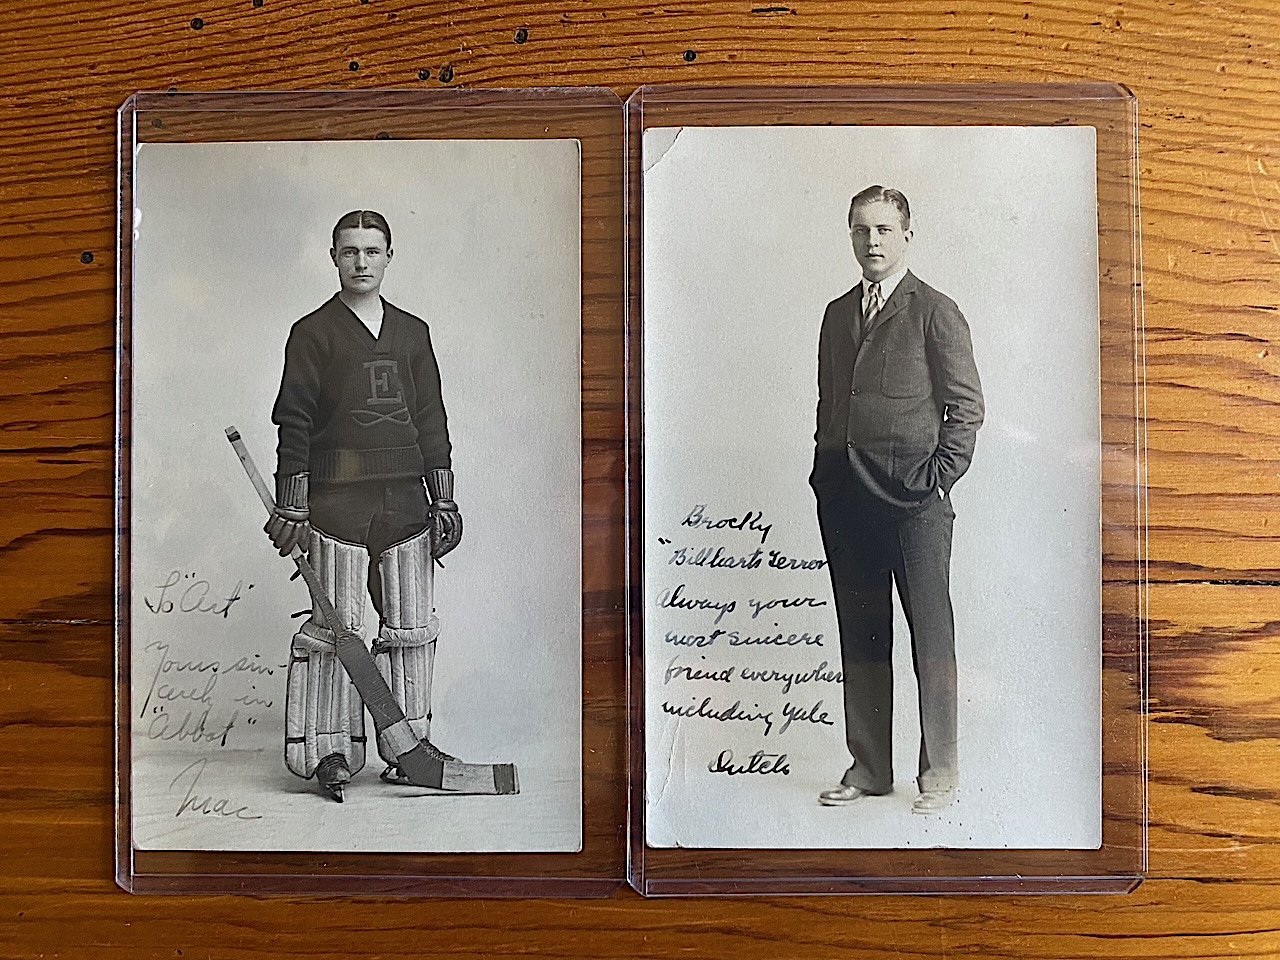 E
To "Art"
Yours sin-
cerely in
"Abbot"
Mac
Brocky
"Billharts Terror"
Always your
most sincere
friend everywhere
including Yale
Dutch